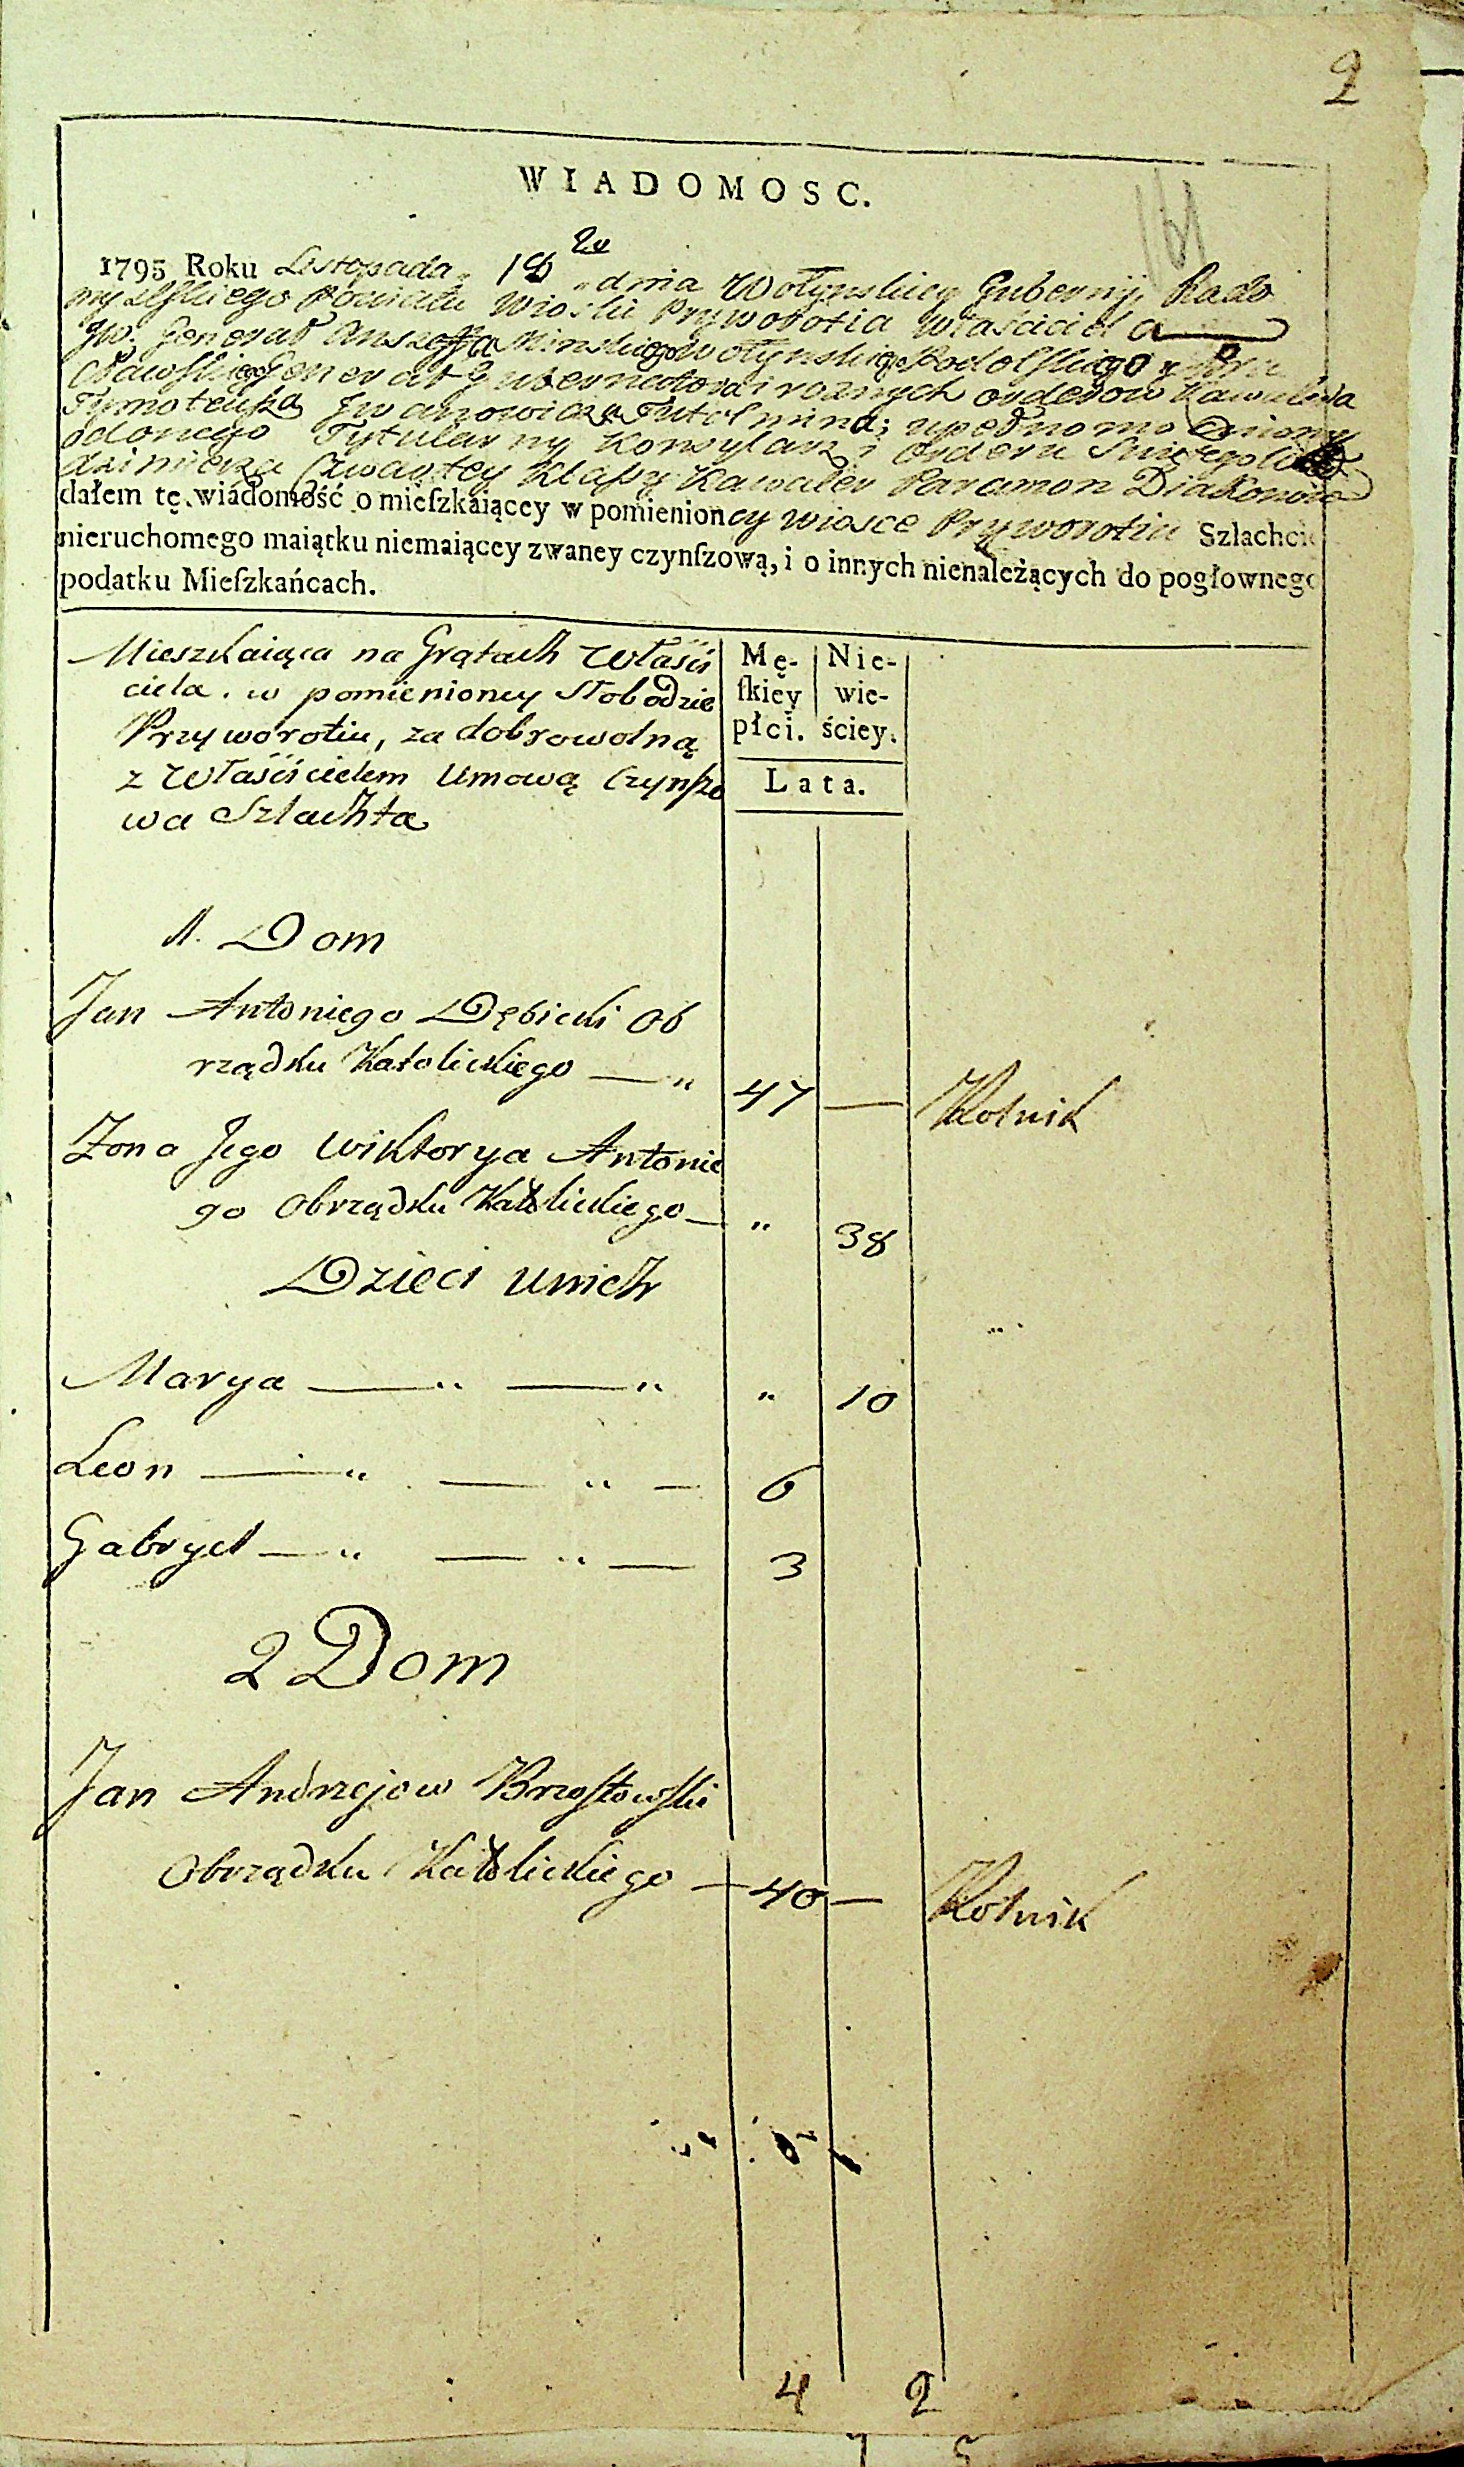 2
161
WIADOMOSC.
1795 Roku Listopada 18 go dnia Wołynskiey Gubernij, Rado
myslskiego Powiatu Wioski Prywototia Właściciela
JW. Generał Anszeffa Minskiego Wołynskiego Podolskiego y Bra
cławskiego Generał Gubernatora i roznych orderow Kawalera
Tymoteusza Jwanowicza Tutolmina; upełnomocniony
od onego Tytularny Konsylarz i orderu Swiętego Wło
dzimierza Czwartey Klaſsy Kawaler Paramon Diakonow
dałem tę wiadomość o mieſzkaiącey w pomienioney wiosce Prywototiu Szlachcie
nieruchomego maiątku niemaiącey zwaney czynſzową, i o innych nienależących do pogłownego
podatku Mieſzkańcach.
Mieszkaiąca na Grątach Właśi
ciela w pomienioney Słobodzie
Przyworotiu, za dobrowolną
z Właśicielem Umową Czynſzo
wa Szlachta
Mę- Nie-
ſkiéy wie-
płci. ściey.
Lata.
1. Dom
Jan Antoniego Dębicki Ob
rządku Katolickiego — " 47 — Rolnik
Zona Jego Wiktorya Antonie
go Obrządku Katolickiego — " 38
Dzieci Unich
Marya — " — " " 10
Leon — " — " — 6
Gabryel — " — " — 3
2 Dom
Jan Andrzejow Brzostowski
Obrządku Katolickiego — 40 — Rolnik
4 2